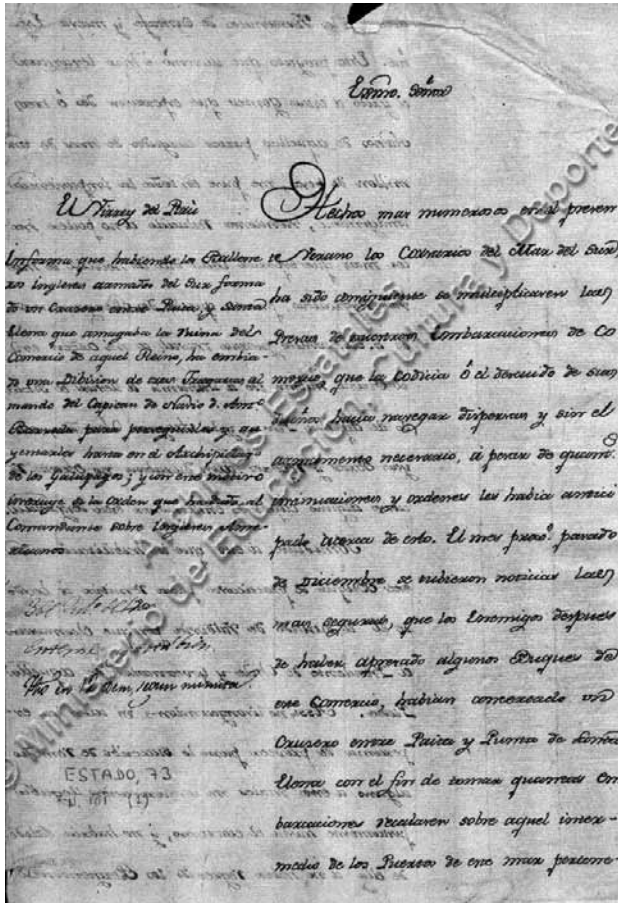 Exmo. Señor
El Virrey del Perú
Informa que habiendo los Ballene
ros Ingleses armados del Sur forma
do un Crucero entre Paita y Santa
Elena que amagaba la ruina del
Comercio de aquel Reino, ha embia-
do una Dibision de tres Fragatas al
mando del Capitan de Navio d. Ant.º
Barreda para perseguirlos y
hasta en el Archipielago
de los Galapagos; y con este motivo
incluye la orden que ha dado al
Comandante sobre Ingleses Ame-
ricanos
Hechos mas numerosos en el presen
te Verano los Corsarios del Mar del Sur,
ha sido consiguiente se multiplicasen las
Presas de nuestras Embarcaciones de Co
mercio, que la Codicia ó el descuido de sus
dueños hacia navegar dispersas y sin el
armamento necesario, á pesar de quant.s
insinuaciones y ordenes les habia antici
pado acerca de esto. El mes prox.º pasado
de Diciembre se tubieron noticias las
mas seguras, que los Enemigos despues
de haber apresado algunos Buques de
este Comercio, habian comenzado un
Cruzero entre Paita y Punta de Santa
Elena con el fin de tomar quantas Em
barcaciones recalasen sobre aquel inter-
medio de los Puertos de este mar pertene-
ESTADO, 73
© Ministerio de Educación, Cultura y Deporte
Archivos Estatales